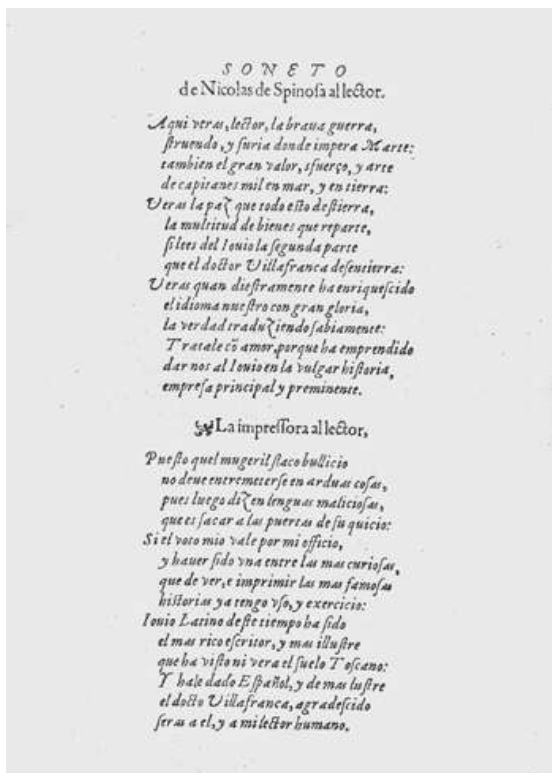 SONETO
de Nicolas de Spinoſa al lector.
Aqui veras, lector, la braua guerra,
ſtruendo, y furia donde impera Marte:
tambien el gran valor, sfuerço, y arte
de capitanes mil en mar, y en tierra:
Veras la paz que todo esto deſtierra,
la multitud de bienes que reparte,
ſi lees del Iouio la ſegunda parte
que el doctor Villafranca deſentierra:
Veras quan dieſtramente ha enriqueſcido
el idioma nueſtro con gran gloria,
la verdad traduziendo ſabiamente:
Tratale cõ amor, porque ha emprendido
dar nos al Iouio en la vulgar hiſtoria,
empreſa principal y preminente.
La impreſſora al lector,
Pueſto quel mugeril flaco bullicio
no deue entremeterſe en arduas coſas,
pues luego dizen lenguas malicioſas,
que es ſacar a las puertas de ſu quicio:
Si el voto mio vale por mi officio,
y hauer ſido vna entre las mas curioſas,
que de ver, e imprimir las mas famoſas
hiſtorias ya tengo vſo, y exercicio:
Iouio Latino deſte tiempo ha ſido
el mas rico eſcritor, y mas illuſtre
que ha viſto ni vera el ſuelo Toſcano:
Y hale dado Eſpañol, y de mas luſtre
el docto Villafranca, agradeſcido
ſeras a el, y a mi lector humano.